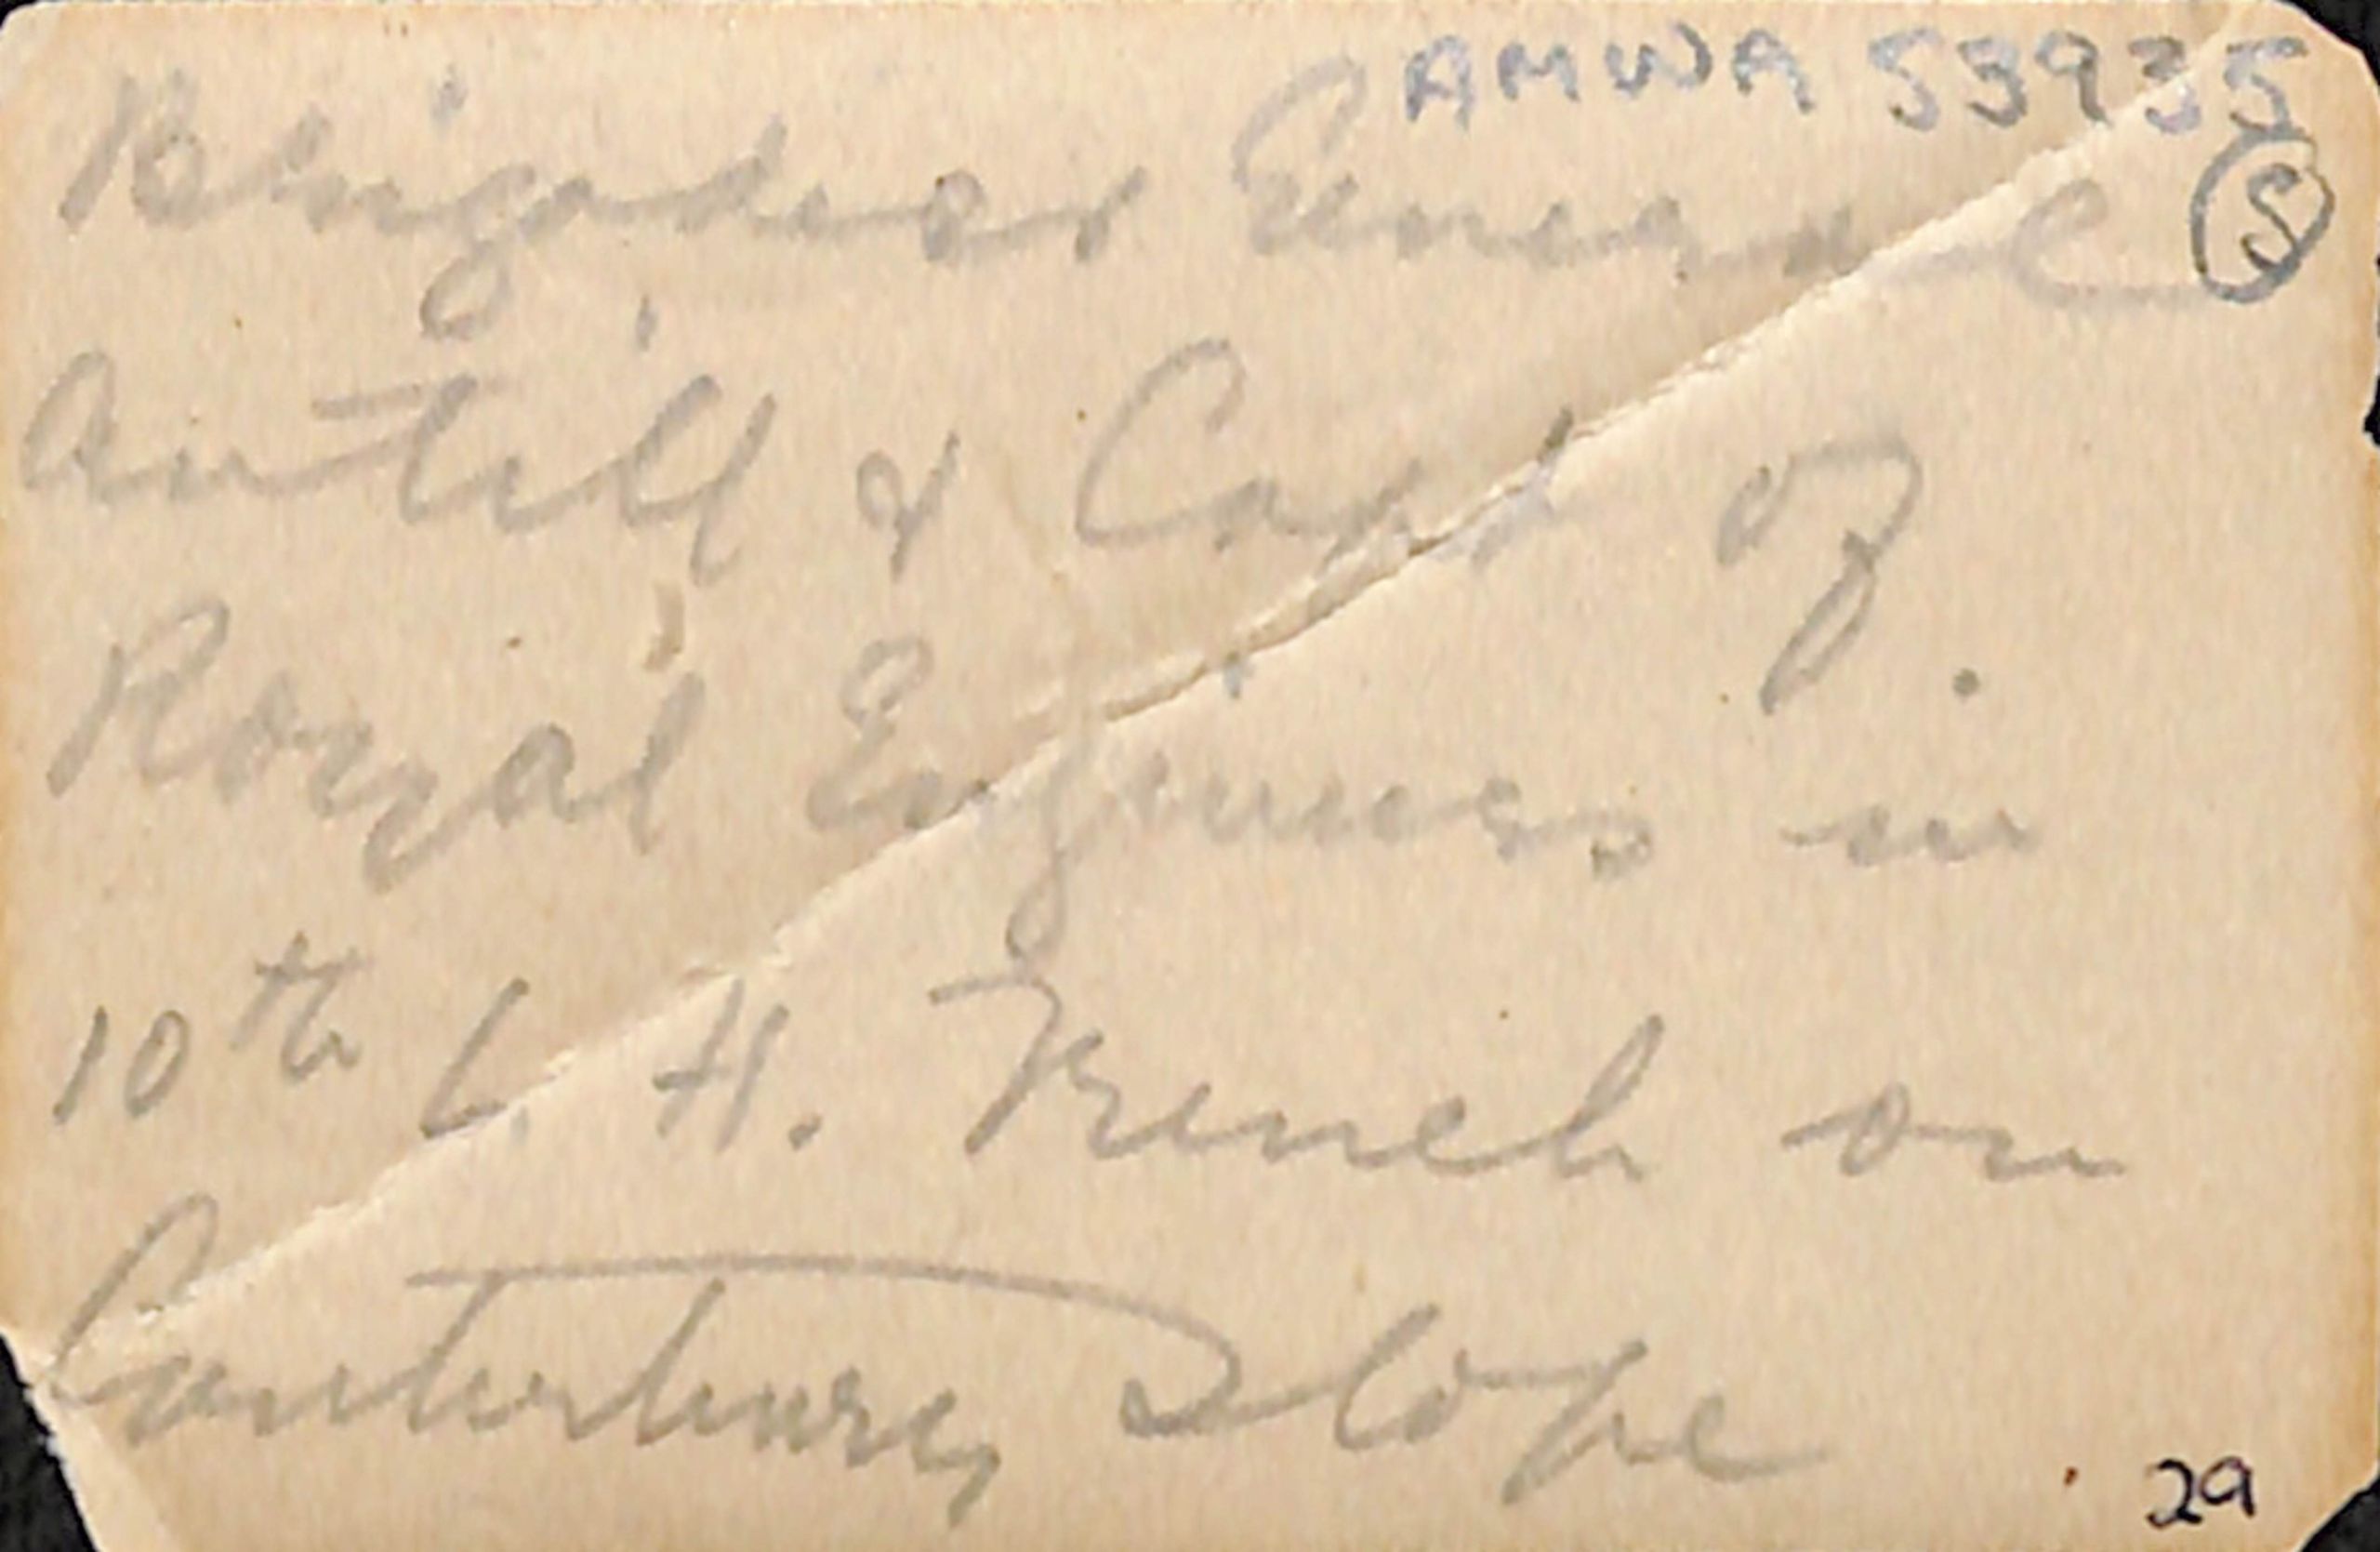 AMWA 53935
Brigadier General Ⓢ
Antill & Capt of
Royal Engineers in
10th L. H. Trench on
Canterbury Slope
29